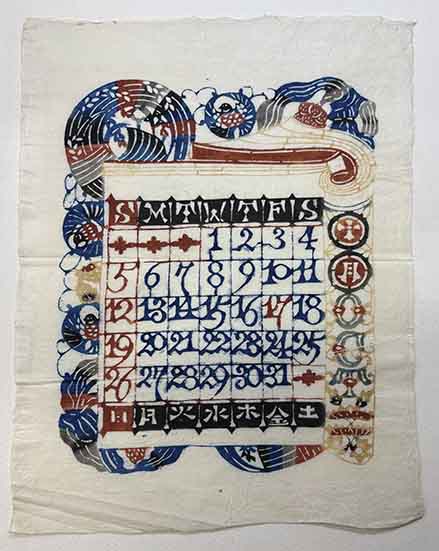 S M T W T F S
1 2 3 4
5 6 7 8 9 10 11
12 13 14 15 16 17 18
19 20 21 22 23 24 25
26 27 28 29 30 31
日 月 火 水 木 金 土
十
月
O
C
T